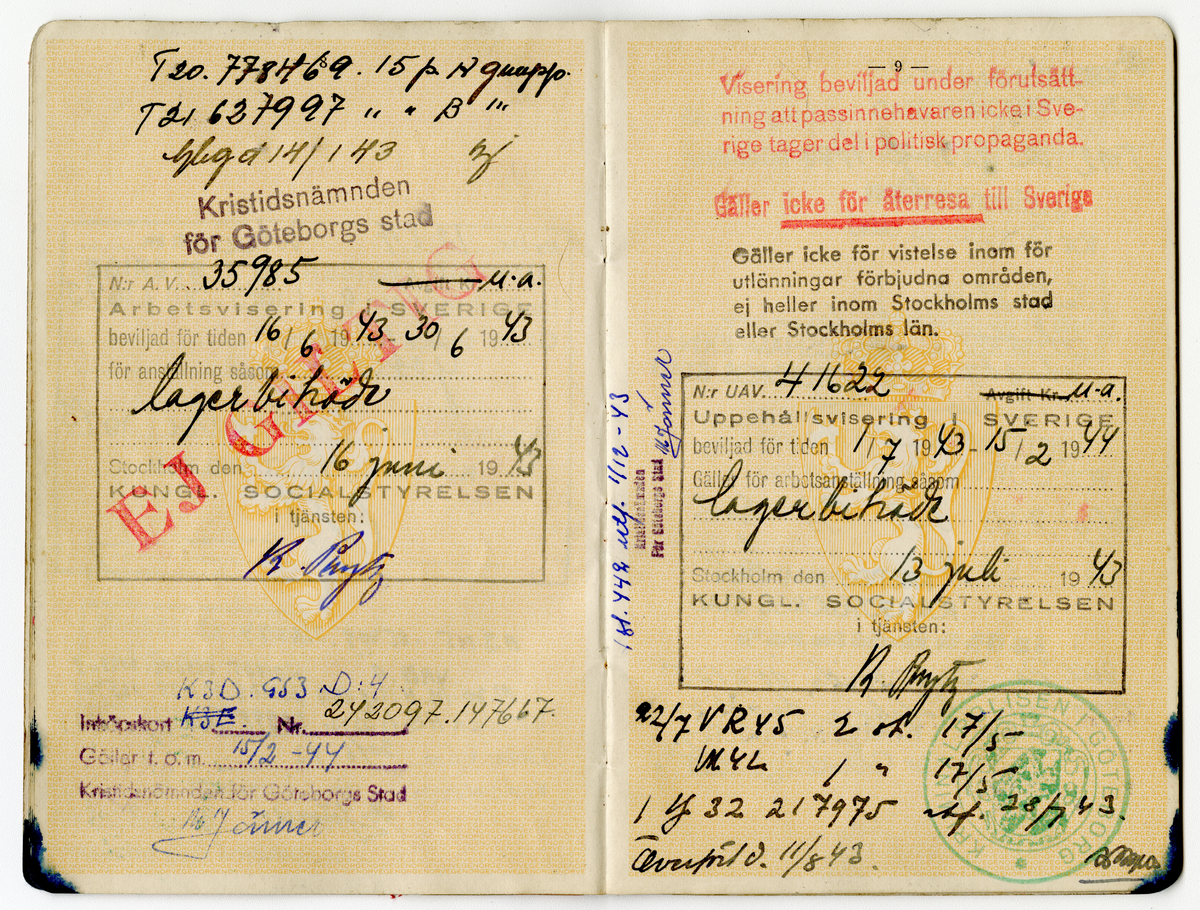 T20. 778469. 15 p. A grupp.
T21 627997 " " B "
Gbg d 14/1 43
Kristidsnämnden
för Göteborgs stad
N:r A.V. 35985 Avgift Kr. u.a.
Arbetsvisering i SVERIGE
beviljad för tiden 16/6 1943-30/6 1943
för anställning såsom
lagerbiträde
EJ GILTIG
Stockholm den 16 juni 1943
KUNGL. SOCIALSTYRELSEN
i tjänsten:
R.
K3D. GS3 D:4
Inköpskort K3E. Nr. 242097. 147667.
Gäller t.o.m. 15/2 -44
Kristidsnämnden för Göteborgs Stad
— 9 —
Visering beviljad under förutsätt-
ning att passinnehavaren icke i Sve-
rige tager del i politisk propaganda.
Gäller icke för återresa till Sverige
Gäller icke för vistelse inom för
utlänningar förbjudna områden,
ej heller inom Stockholms stad
eller Stockholms län.
N:r UAV. 41622 Avgift Kr. u.a.
Uppehållsvisering i SVERIGE
beviljad för tiden 1/7 1943-15/2 1944
Gäller för arbetsanställning såsom
lagerbiträde
Stockholm den 13 juli 1943
KUNGL. SOCIALSTYRELSEN
i tjänsten:
R.
utl. 1/12 -43
Kristidsnämnden
För Göteborgs Stad
22/7 VR45 2 st. 17/5
M42 1 " 17/5
1 32 217975 28/7 43.
d. 11/8 43.
KRIMINALPOLISEN I GÖTEBORG